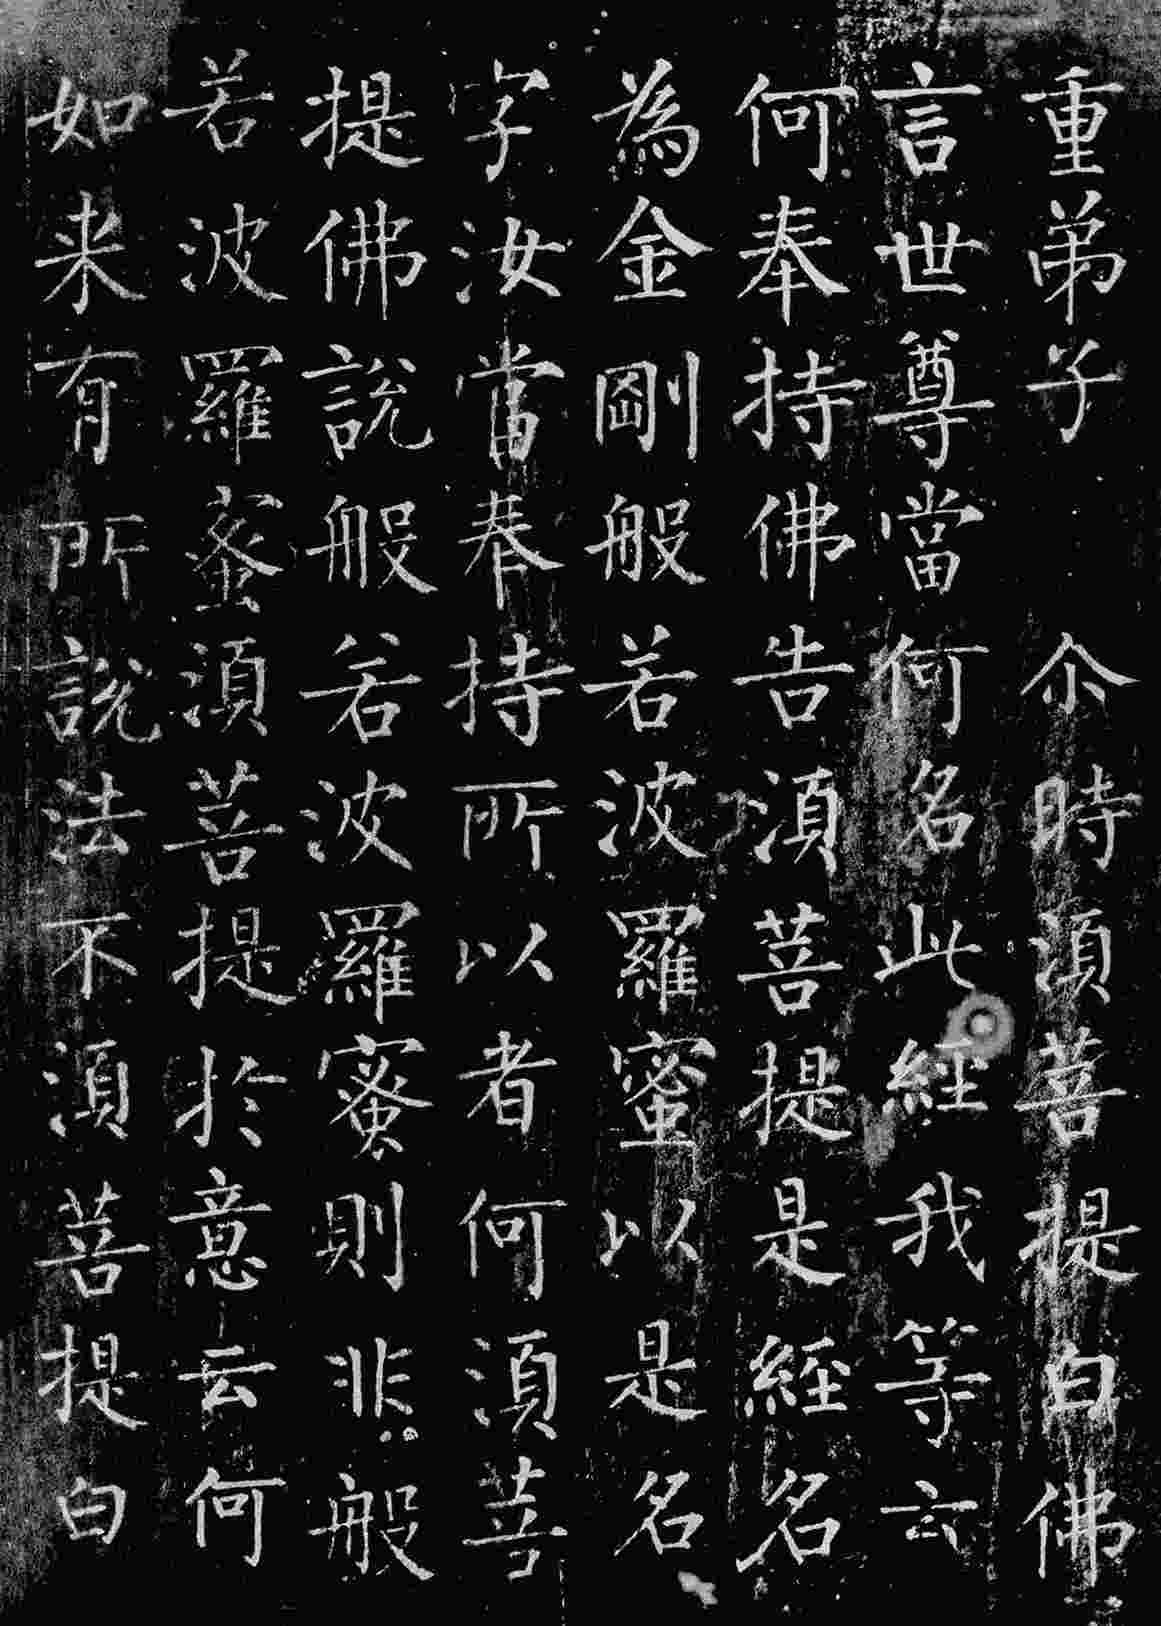 重弟子　尒時湏菩提白佛
言世尊當何名此經我等云
何奉持佛告湏菩提是經名
為金剛般若波羅蜜以是名
字汝當奉持所以者何湏菩
提佛說般若波羅蜜則非般
若波羅蜜湏菩提於意云何
如来有所說法不湏菩提白